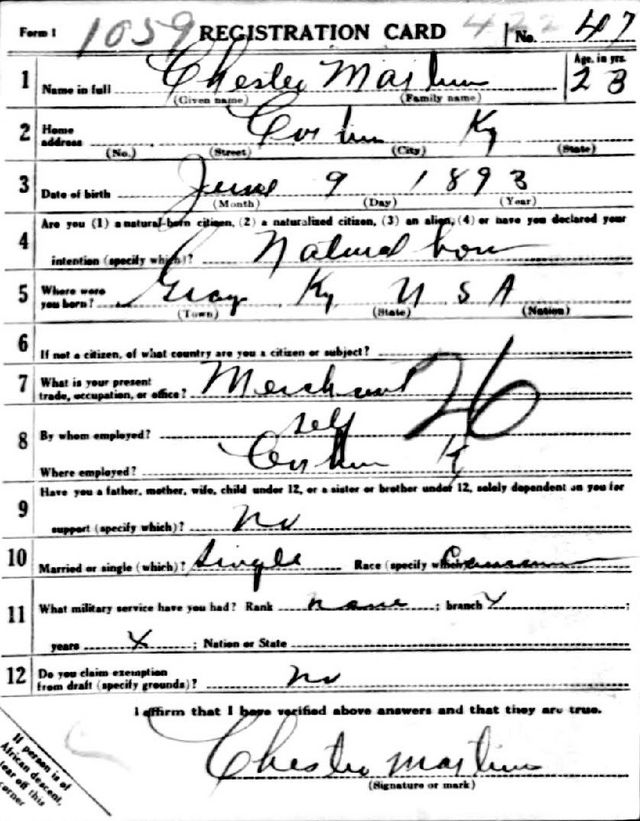 Form 1 1059 REGISTRATION CARD 422 No. 47
1 Name in full Chester Martin Age, in yrs. 23
(Given name) (Family name)
2 Home address Corbin Ky
(No.) (Street) (City) (State)
3 Date of birth June 9 1893
(Month) (Day) (Year)
4 Are you (1) a natural-born citizen, (2) a naturalized citizen, (3) an alien, (4) or have you declared your
intention (specify which)? Natural born
5 Where were you born? Gray Ky U S A
(Town) (State) (Nation)
6 If not a citizen, of what country are you a citizen or subject?
7 What is your present trade, occupation, or office? Merchant 26
8 By whom employed? self
Where employed? Corbin Ky
9 Have you a father, mother, wife, child under 12, or a sister or brother under 12, solely dependent on you for
support (specify which)? No
10 Married or single (which)? Single Race (specify which)
11 What military service have you had? Rank none ; branch x ;
years x ; Nation or State
12 Do you claim exemption from draft (specify grounds)? No
I affirm that I have verified above answers and that they are true.
Chester Martin
(Signature or mark)
If person is of
African descent,
tear off this
corner